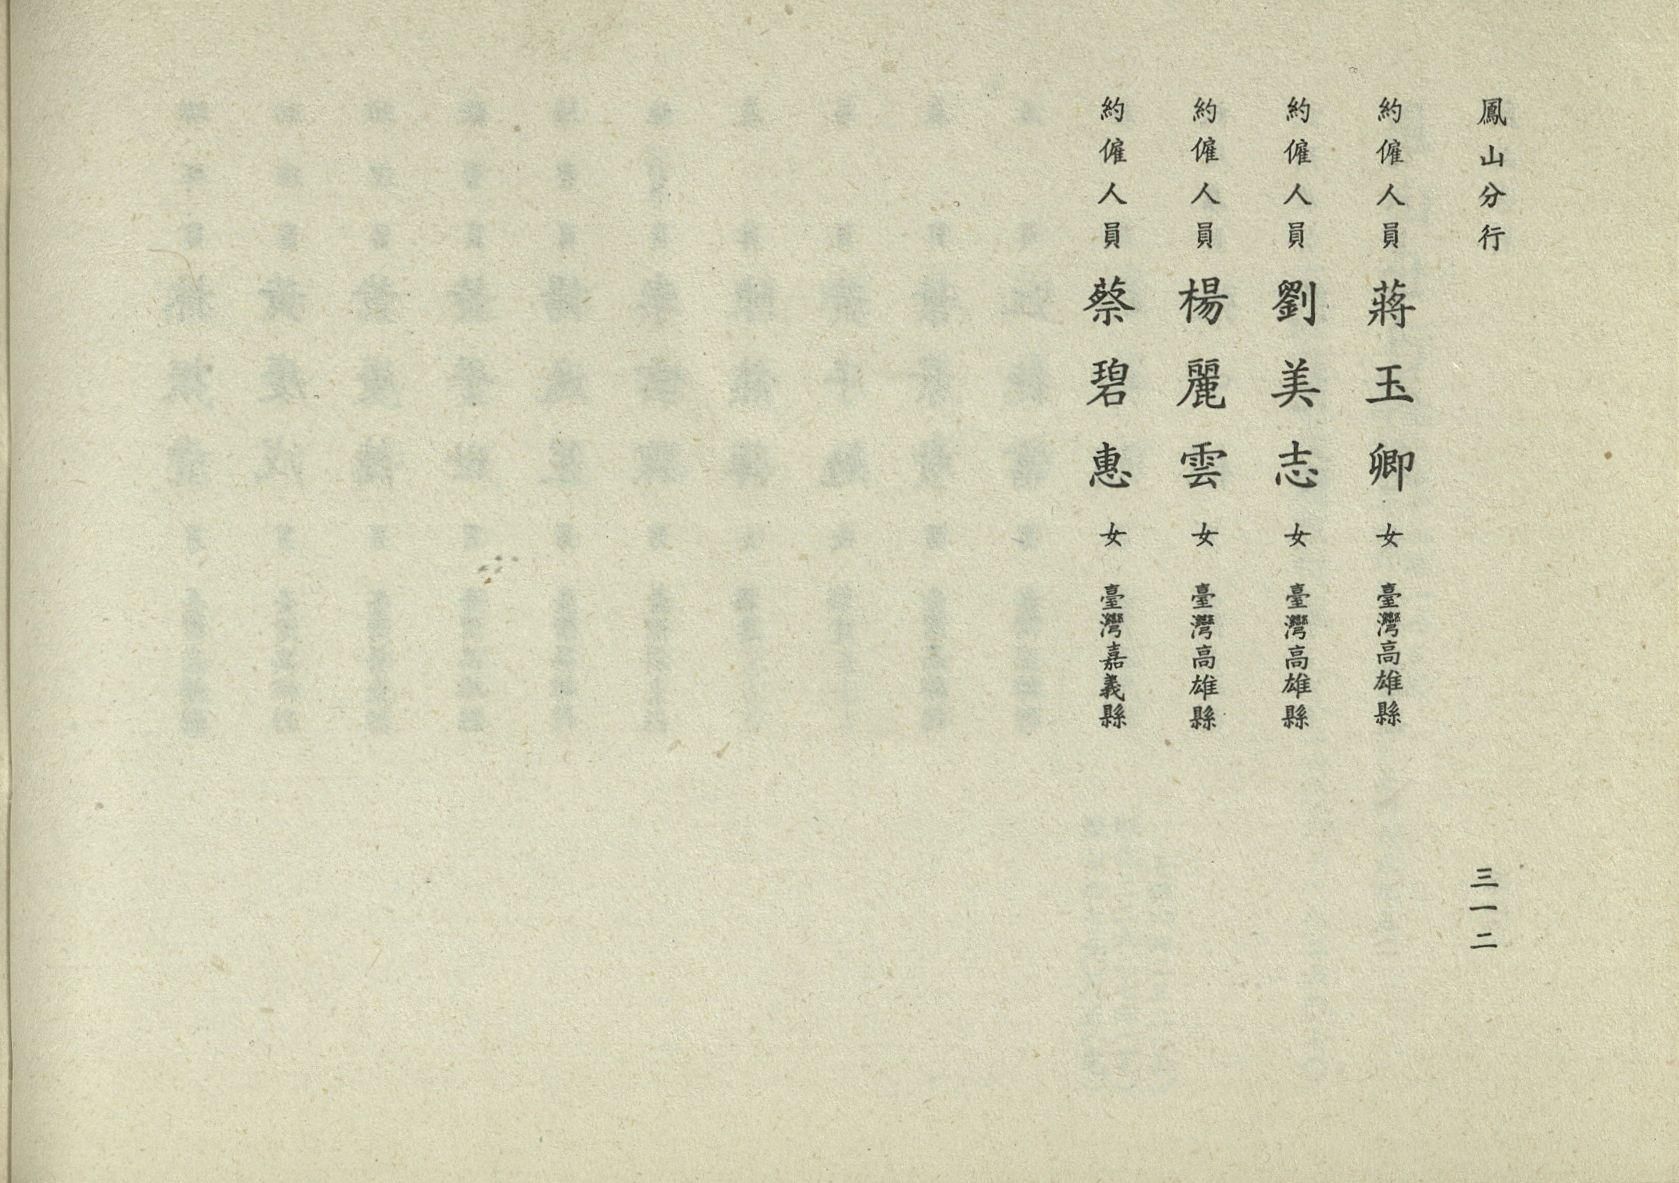 鳳山分行
約僱人員 蔣玉卿 女 臺灣高雄縣
約僱人員 劉美志 女 臺灣高雄縣
約僱人員 楊麗雲 女 臺灣高雄縣
約僱人員 蔡碧惠 女 臺灣嘉義縣
三一二